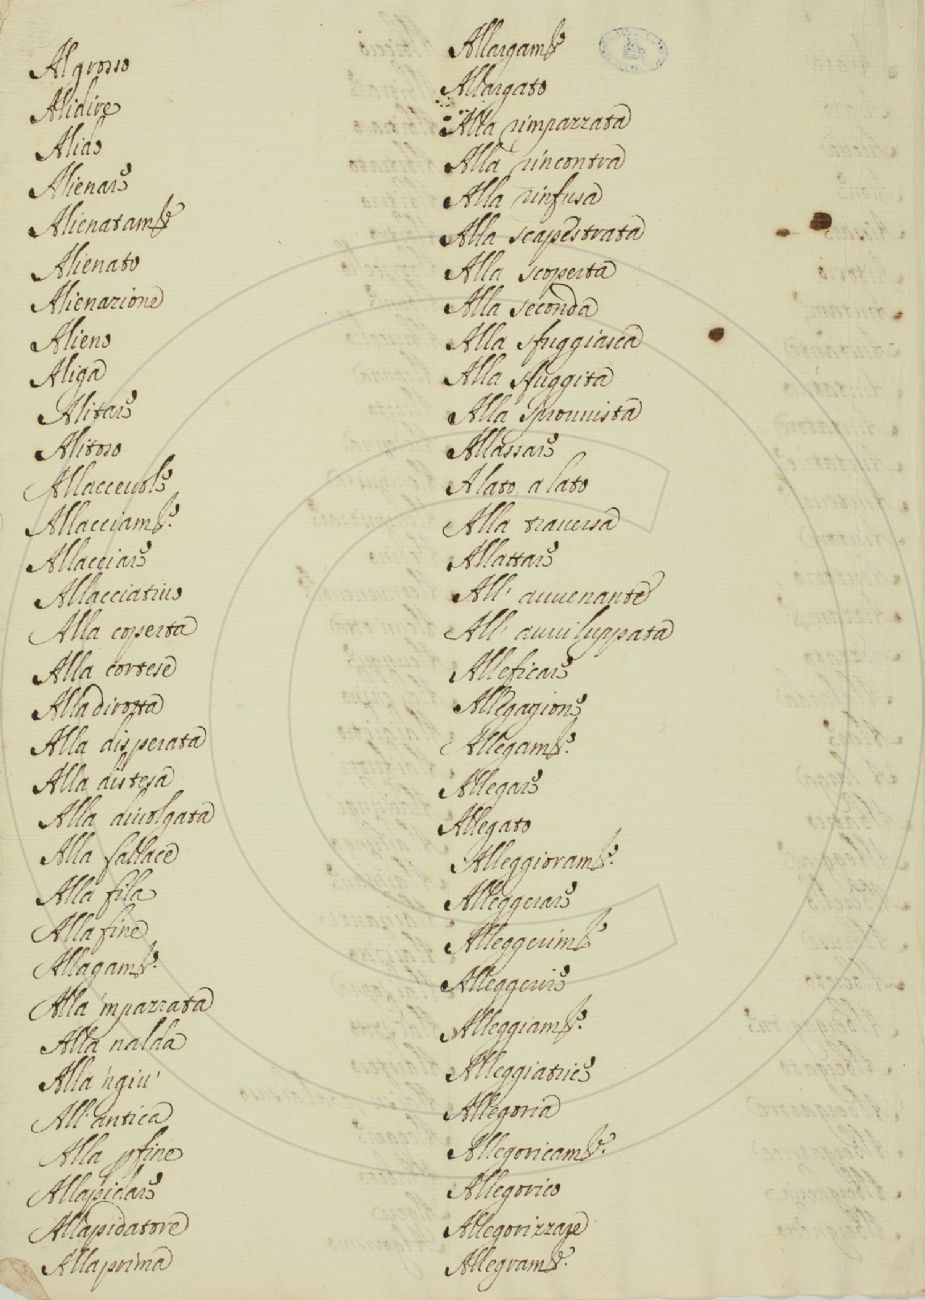 Al grosso
Alidire
Alido
Alienare
Alienatamte
Alienato
Alienazione
Alieno
Aliga
Alitare
Alitoso
Allaccevole
Allacciamto.
Allacciare
Allacciativo
Alla coperta
Alla cortese
Alla dirotta
Alla disperata
Alla distesa
Alla divolgata
Alla fallace
Alla fila
Alla fine
Allagamto.
Alla 'mpazzata
Alla nalda
Alla 'ngiu'
All' antica
Alla pfine
Allapidare
Allapidatore
Alla prima
Allargamto
Allargato
Alla rimpazzata
Alla rincontra
Alla rinfusa
Alla scapestrata
Alla scoperta
Alla seconda
Alla sfuggiasca
Alla sfuggita
Alla sprouuista
Allassare
A lato, a lato
Alla trauersa
Allattare
All' auuenante
All' auuiluppata
Alleficare
Allegagione
Allegamto.
Allegare
Allegato
Alleggioramto.
Alleggerare
Alleggerimto
Alleggerire
Alleggiamto.
Alleggiatrice
Allegoria
Allegoricamte.
Allegorico
Allegorizzare
Allegramte.